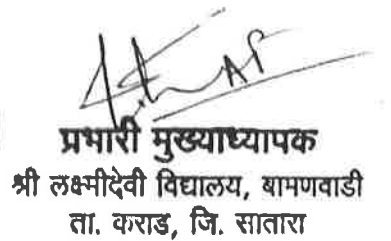 प्रभारी मुख्याध्यापक
श्री लक्ष्मीदेवी विद्यालय, बामणवाडी
ता. कराड, जि. सातारा